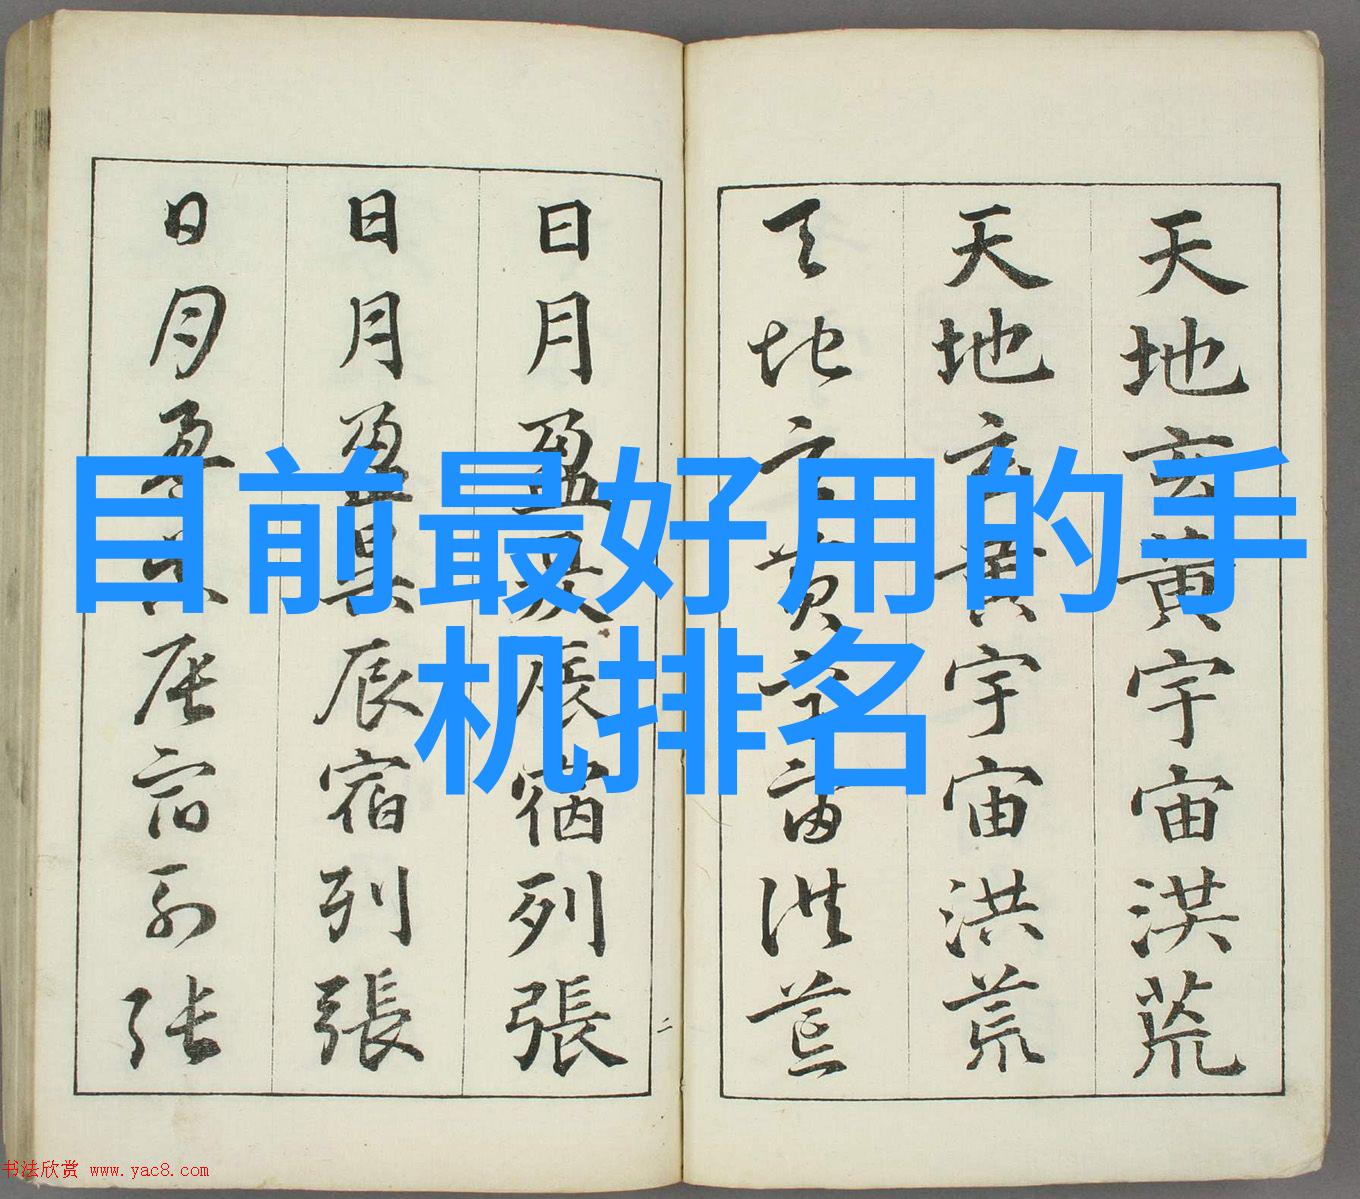 目前最好用的手
机排名
天地玄黃宇宙洪荒
天地玄黃宇宙洪荒
天地玄黃宇宙洪荒
日月盈昃辰宿列張
日月盈昃辰宿列張
日月盈昃辰宿列張
二
书法欣赏 www.yac8.com